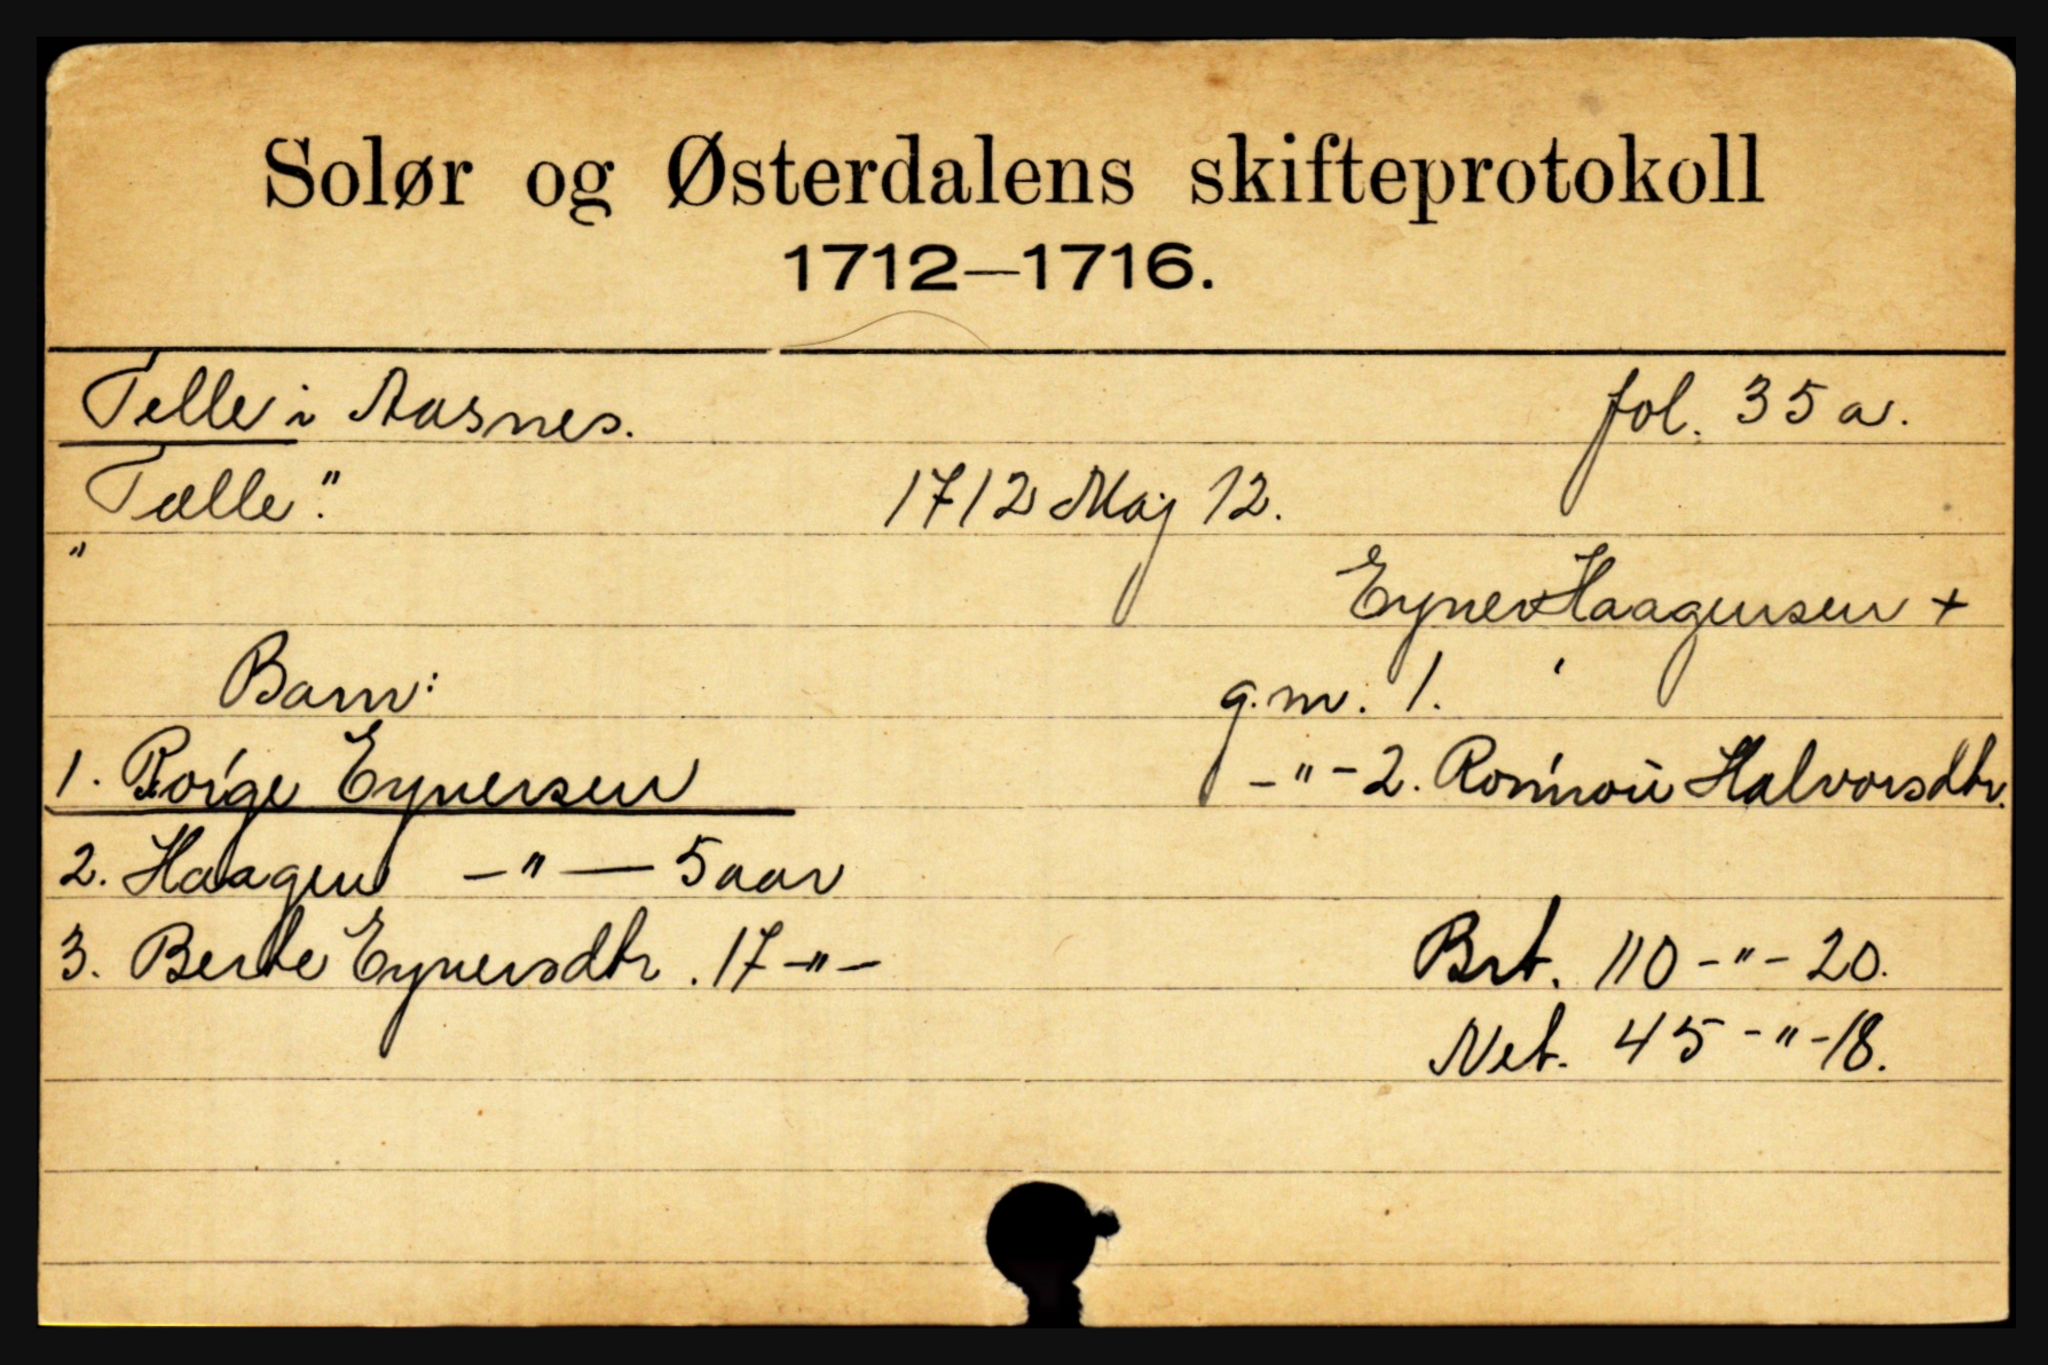 Solør og Østerdalens skifteprotokoll
1712—1716.
Telle i Aasnes. fol. 35 a.
Tælle". 1712 Maj 12.
" Eyner Haagensen +
Barn: g.m. 1. '
1. Børge Eynersen -"- 2. Rønnou Halvorsdtr.
2. Haagen -"— 5 aar
3. Berte Eynersdtr. 17 -"- Brt. 110 -"- 20.
Net. 45 -"- 18.